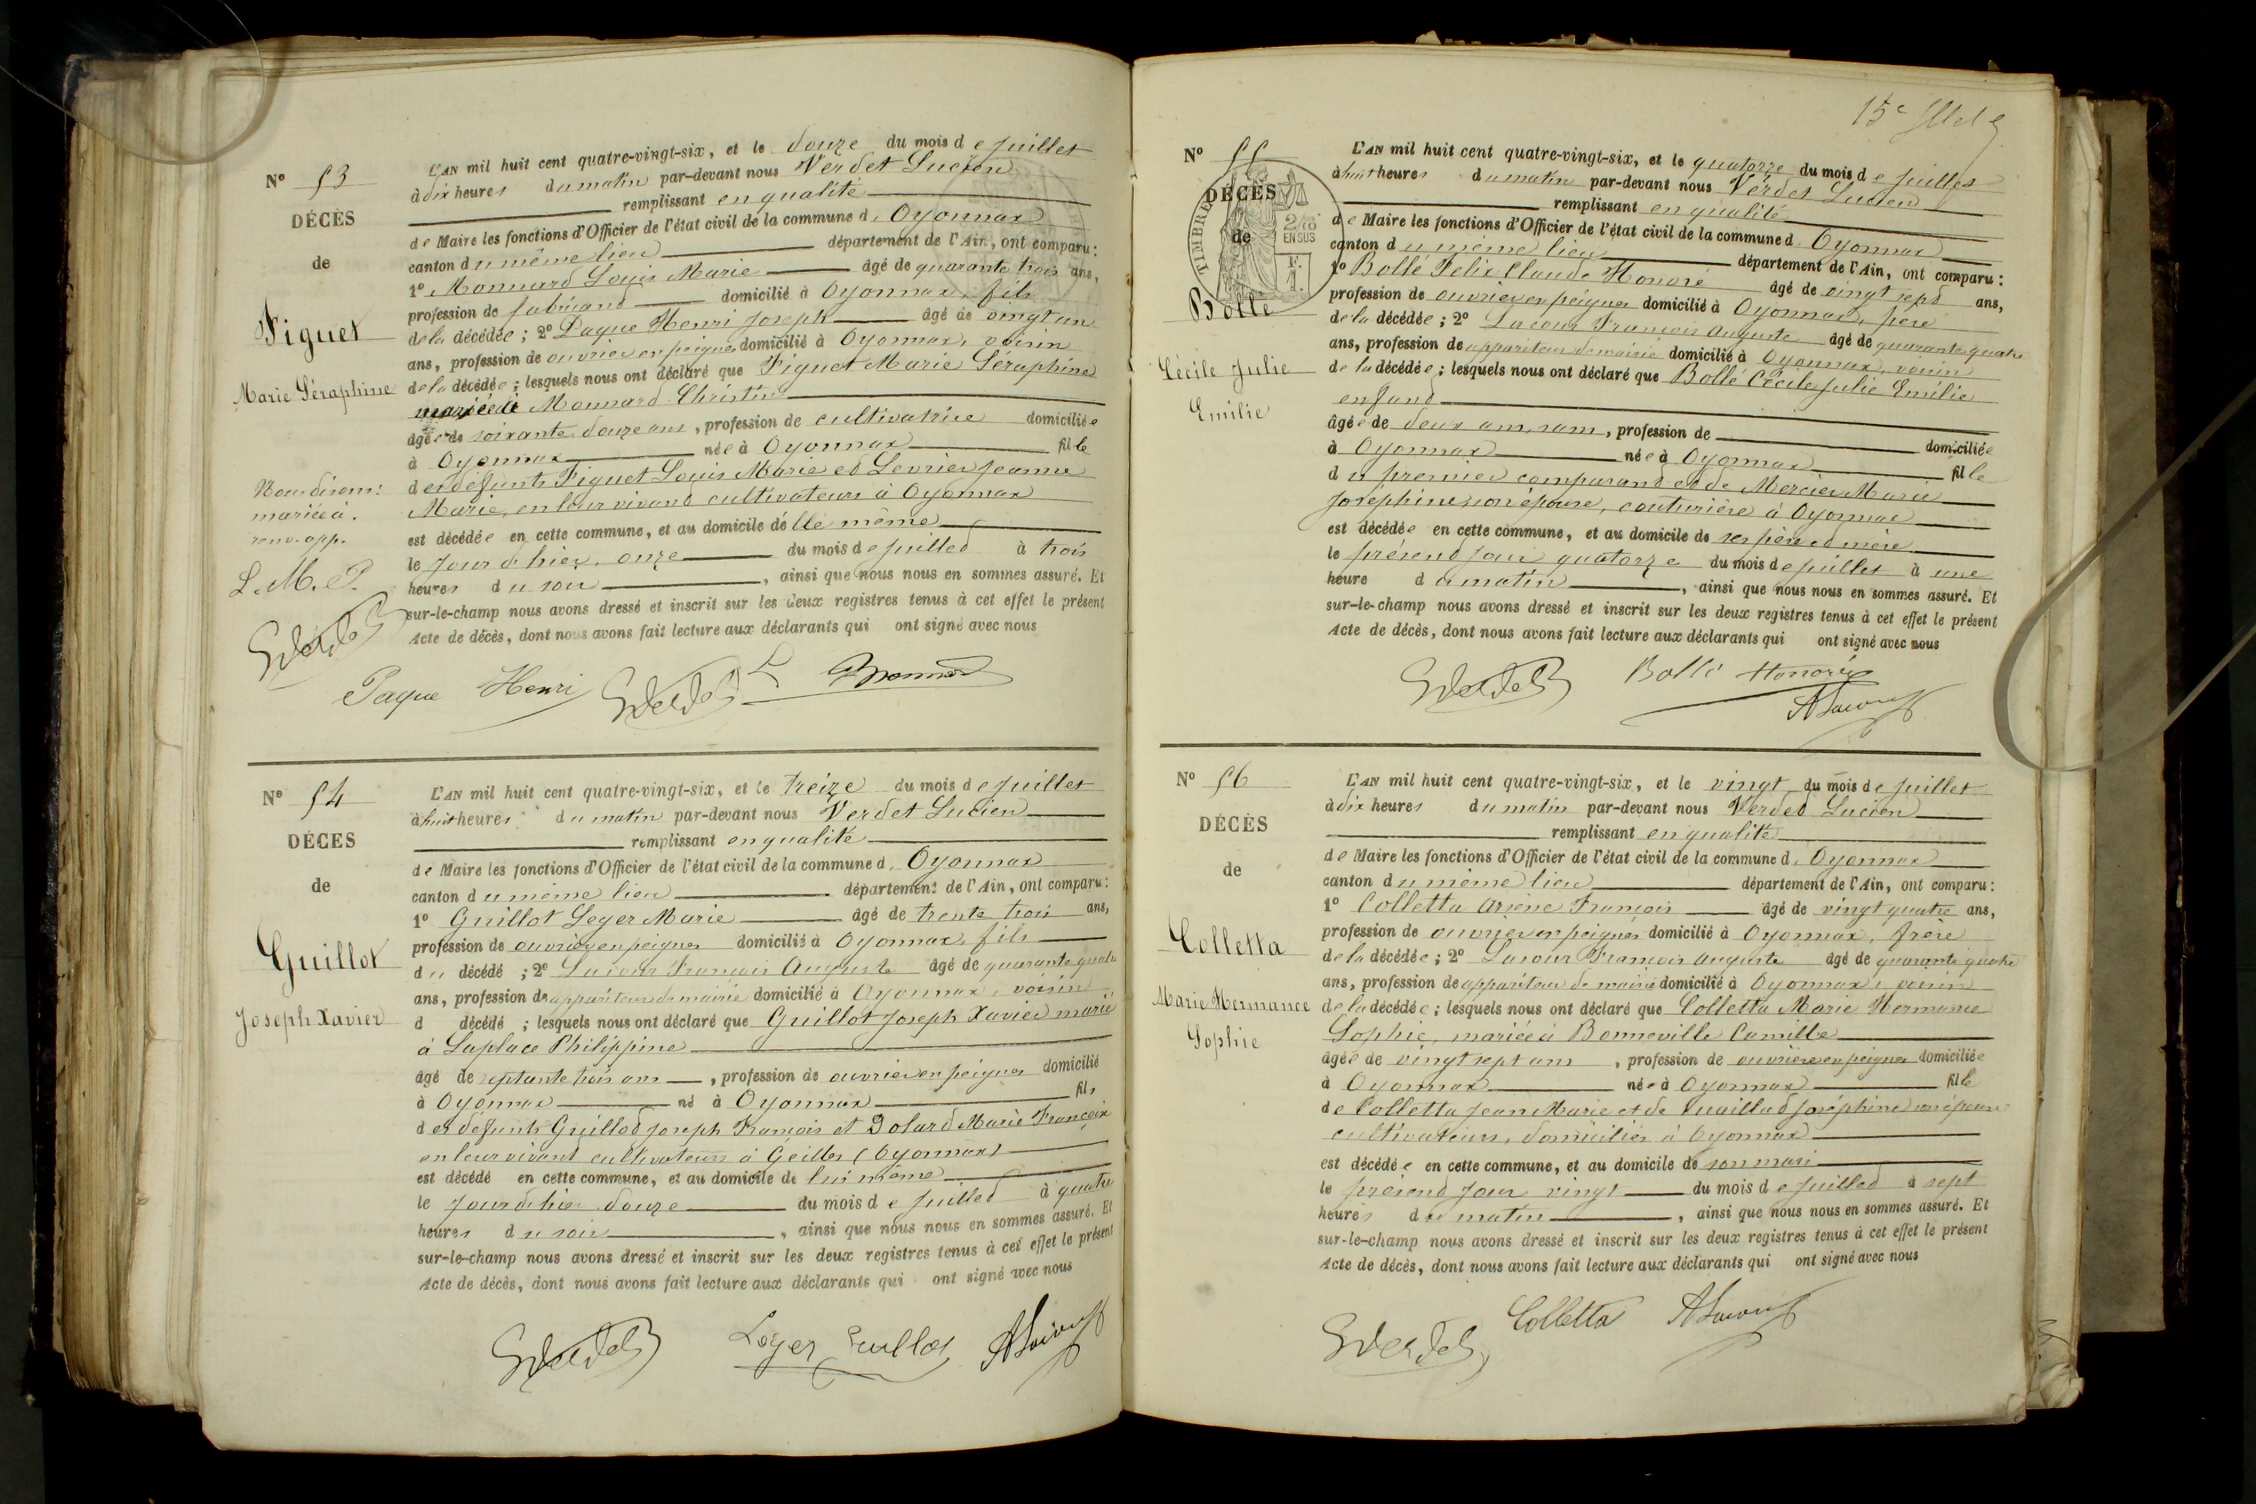 N° 53
DÉCÈS
de
Figuet
Marie Séraphine
Nous disons:
mariée à.
renv. app.
L. M. P.
L'AN mil huit cent quatre-vingt-six, et le douze du mois de juillet
à dix heures du matin par-devant nous Verdet Lucien
remplissant en qualité
de Maire les fonctions d'Officier de l'état civil de la commune d'Oyonnax
canton du même lieu département de l'Ain, ont comparu:
1° Monnard Louis Marie âgé de quarante trois ans,
profession de fabricant domicilié à Oyonnax, fils
de la décédée; 2° Paque Henri Joseph âgé de vingt un
ans, profession de ouvrier en peignes domicilié à Oyonnax, voisin
de la décédée; lesquels nous ont déclaré que Figuet Marie Séraphine
mariée à Monnard Christin
âgée de soixante douze ans, profession de cultivatrice domiciliée
à Oyonnax née à Oyonnax fille
des défunts Figuet Louis Marie et Levrier Jeanne
Marie, en leur vivant cultivateurs à Oyonnax
est décédée en cette commune, et au domicile d'elle même
le jour d'hier, onze du mois de juillet à trois
heures du soir, ainsi que nous nous en sommes assuré. Et
sur-le-champ nous avons dressé et inscrit sur les deux registres tenus à cet effet le présent
Acte de décès, dont nous avons fait lecture aux déclarants qui ont signé avec nous
Paque Henri Verdet L Monnard
N° 54
DÉCÈS
de
Guillot
Joseph Xavier
L'AN mil huit cent quatre-vingt-six, et le treize du mois de juillet
à huit heures du matin par-devant nous Verdet Lucien
remplissant en qualité
de Maire les fonctions d'Officier de l'état civil de la commune d'Oyonnax
canton du même lieu département de l'Ain, ont comparu:
1° Guillot Leger Marie âgé de trente trois ans,
profession de ouvrier en peignes domicilié à Oyonnax, fils
du décédé; 2° Lacour François Auguste âgé de quarante quatre
ans, profession de appariteur de mairie domicilié à Oyonnax, voisin
d décédé; lesquels nous ont déclaré que Guillot Joseph Xavier marié
à Laplace Philippine
âgé de septante trois ans, profession de ouvrier en peignes domicilié
à Oyonnax né à Oyonnax fils
des défunts Guillot Joseph François et Dolard Marie Françoise
en leur vivant cultivateurs à Geilles (Oyonnax)
est décédé en cette commune, et au domicile de lui même
le jour d'hier douze du mois de juillet à quatre
heures du soir, ainsi que nous nous en sommes assuré. Et
sur-le-champ nous avons dressé et inscrit sur les deux registres tenus à cet effet le présent
Acte de décès, dont nous avons fait lecture aux déclarants qui ont signé avec nous
Verdet Léger Guillot A Lacour
N° 55
DÉCÈS
de
Bollé
Cécile Julie
Emilie
TIMBRE
2/10
EN SUS
L'AN mil huit cent quatre-vingt-six, et le quatorze du mois de juillet
à huit heures du matin par-devant nous Verdet Lucien
remplissant en qualité
de Maire les fonctions d'Officier de l'état civil de la commune d'Oyonnax
canton du même lieu département de l'Ain, ont comparu:
1° Bollé Felix Claude Honoré âgé de vingt sept ans,
profession de ouvrier en peignes domicilié à Oyonnax, père
de la décédée; 2° Lacour François Auguste âgé de quarante quatre
ans, profession de appariteur de mairie domicilié à Oyonnax, voisin
de la décédée; lesquels nous ont déclaré que Bollé Cécile Julie Emilie
enfant
âgée de deux ans, sans, profession de domiciliée
à Oyonnax née à Oyonnax fille
du premier comparant et de Mercier Marie
Joséphine son épouse, couturière à Oyonnax
est décédée en cette commune, et au domicile de ses père et mère
le présent jour quatorze du mois de juillet à une
heure du matin, ainsi que nous nous en sommes assuré. Et
sur-le-champ nous avons dressé et inscrit sur les deux registres tenus à cet effet le présent
Acte de décès, dont nous avons fait lecture aux déclarants qui ont signé avec nous
Verdet Bollé Honoré
A Lacour
N° 56
DÉCÈS
de
Colletta
Marie Hermance
Sophie
L'AN mil huit cent quatre-vingt-six, et le vingt du mois de juillet
à dix heures du matin par-devant nous Verdet Lucien
remplissant en qualité
de Maire les fonctions d'Officier de l'état civil de la commune d'Oyonnax
canton du même lieu département de l'Ain, ont comparu:
1° Colletta Arsène François âgé de vingt quatre ans,
profession de ouvrier en peignes domicilié à Oyonnax, frère
de la décédée; 2° Lacour François Auguste âgé de quarante quatre
ans, profession de appariteur de mairie domicilié à Oyonnax, voisin
de la décédée; lesquels nous ont déclaré que Colletta Marie Hermance
Sophie, mariée à Bonneville Camille
âgée de vingt sept ans, profession de ouvrière en peignes domiciliée
à Oyonnax née à Oyonnax fille
de Colletta Jean Marie et de Joséphine son épouse
cultivateurs, domiciliés à Oyonnax
est décédée en cette commune, et au domicile de son mari
le présent jour vingt du mois de juillet à sept
heures du matin, ainsi que nous nous en sommes assuré. Et
sur-le-champ nous avons dressé et inscrit sur les deux registres tenus à cet effet le présent
Acte de décès, dont nous avons fait lecture aux déclarants qui ont signé avec nous
Verdet Colletta A Lacour